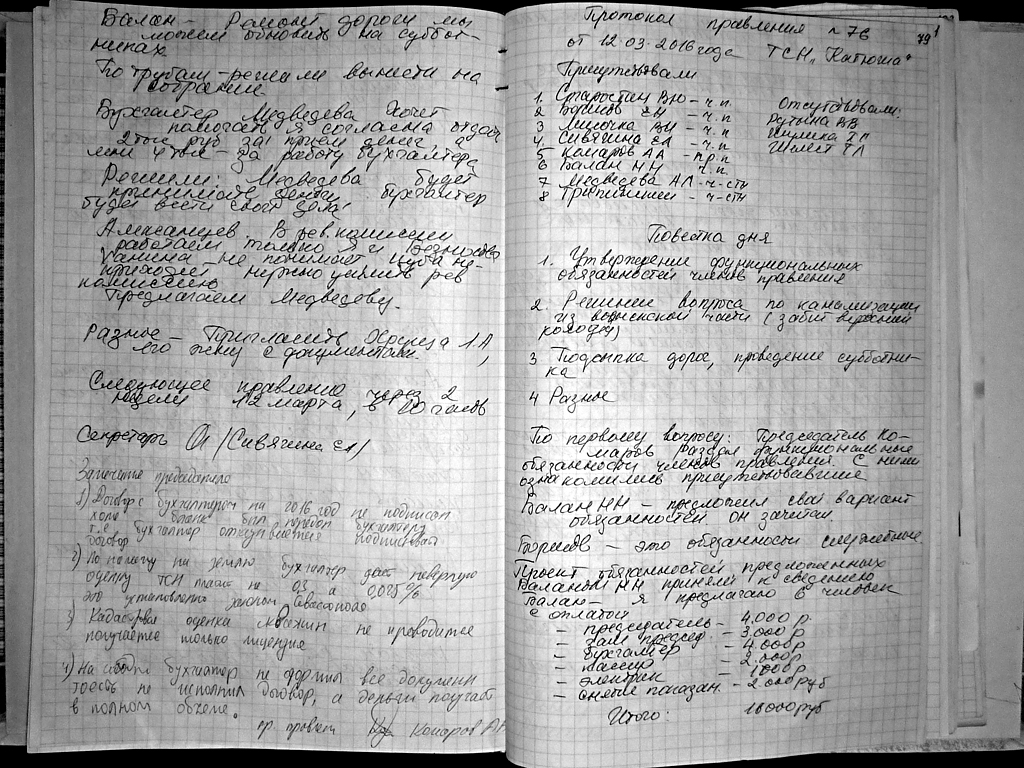 Балан – Ремонт дороги мы
можем обновить на суббот-
никах
По трубам – решили вынести на
собрание
Бухгалтер Медведева хочет
помогать я согласна отдать
2 тыс руб за прием денег а
мои 4 тыс – за работу бухгалтера
Решили: Медведева будет
принимать деньги бухгалтер
будет вести свои дела
Александцев. В рев комиссии
работаем только я и
Ханина не понимает не
приходят нужно усилить рев
комиссию
Предлагаем Медведеву.
Разное – Пригласить 1.А,
его жену с документами.
Следующее правление через 2
недели 12 марта, в 10 часов
Секретарь /Сивягина ЕЛ/
Замечание председателя
1) Договор с бухгалтером на 2016 год не подписан
хотя бланк был передан бухгалтеру
т.е. бухгалтер отказывается подписывать
договор
2) По налогу на землю бухгалтер дает неверную
оценку ТСН платит не 0,3 а 0,025%
это установлено законом Севастополя
3) Кадастровая оценка скважин не проводится
получается только лицензия
4) На сегодня бухгалтер не оформил все документы
то есть не исполнил договор, а деньги получает
в полном объеме.
пр. правл Комаров АА
79
Протокол правления №76
от 12.03.2016 года ТСН „Катюша"
Присутствовали
1. Старостин ВЮ – ч.п. Отсутствовали:
2 Борисов ЕН – ч.п ВВ
3 Мисочка ВИ – ч.п ТП
4. Сивягина ЕЛ – ч.п. ТЛ
5 Комаров АА – пр.п
6 Балан НН ч.п.
7 Медведева АЛ – ч-стн
8 – ч-стн
Повестка дня
1. Утверждение функциональных
обязанностей членов правления
2. Решение вопроса по канализации
из воинской части (забит верхний
колодец)
3 Подсыпка дорог, проведение субботни-
ка
4 Разное
По первому вопросу: Председатель Ко-
маров раздал функциональные
обязанности членов правления. С ними
ознакомились присутствовавшие
Балан НН – предложил свой вариант
обязанностей он зачитал.
Борисов – это обязанности
Проект обязанностей предложенных
Баланом НН приняли к сведению
Балан – я предлагаю 6 человек
с оплатой
– председатель – 4.000 р.
– зам председ – 3.000 р
– бухгалтер – 4 000р
– кассир – 2.000р
– электрик – 1000р
– снятие показан. – 2 000 руб
Итого: 16000 руб